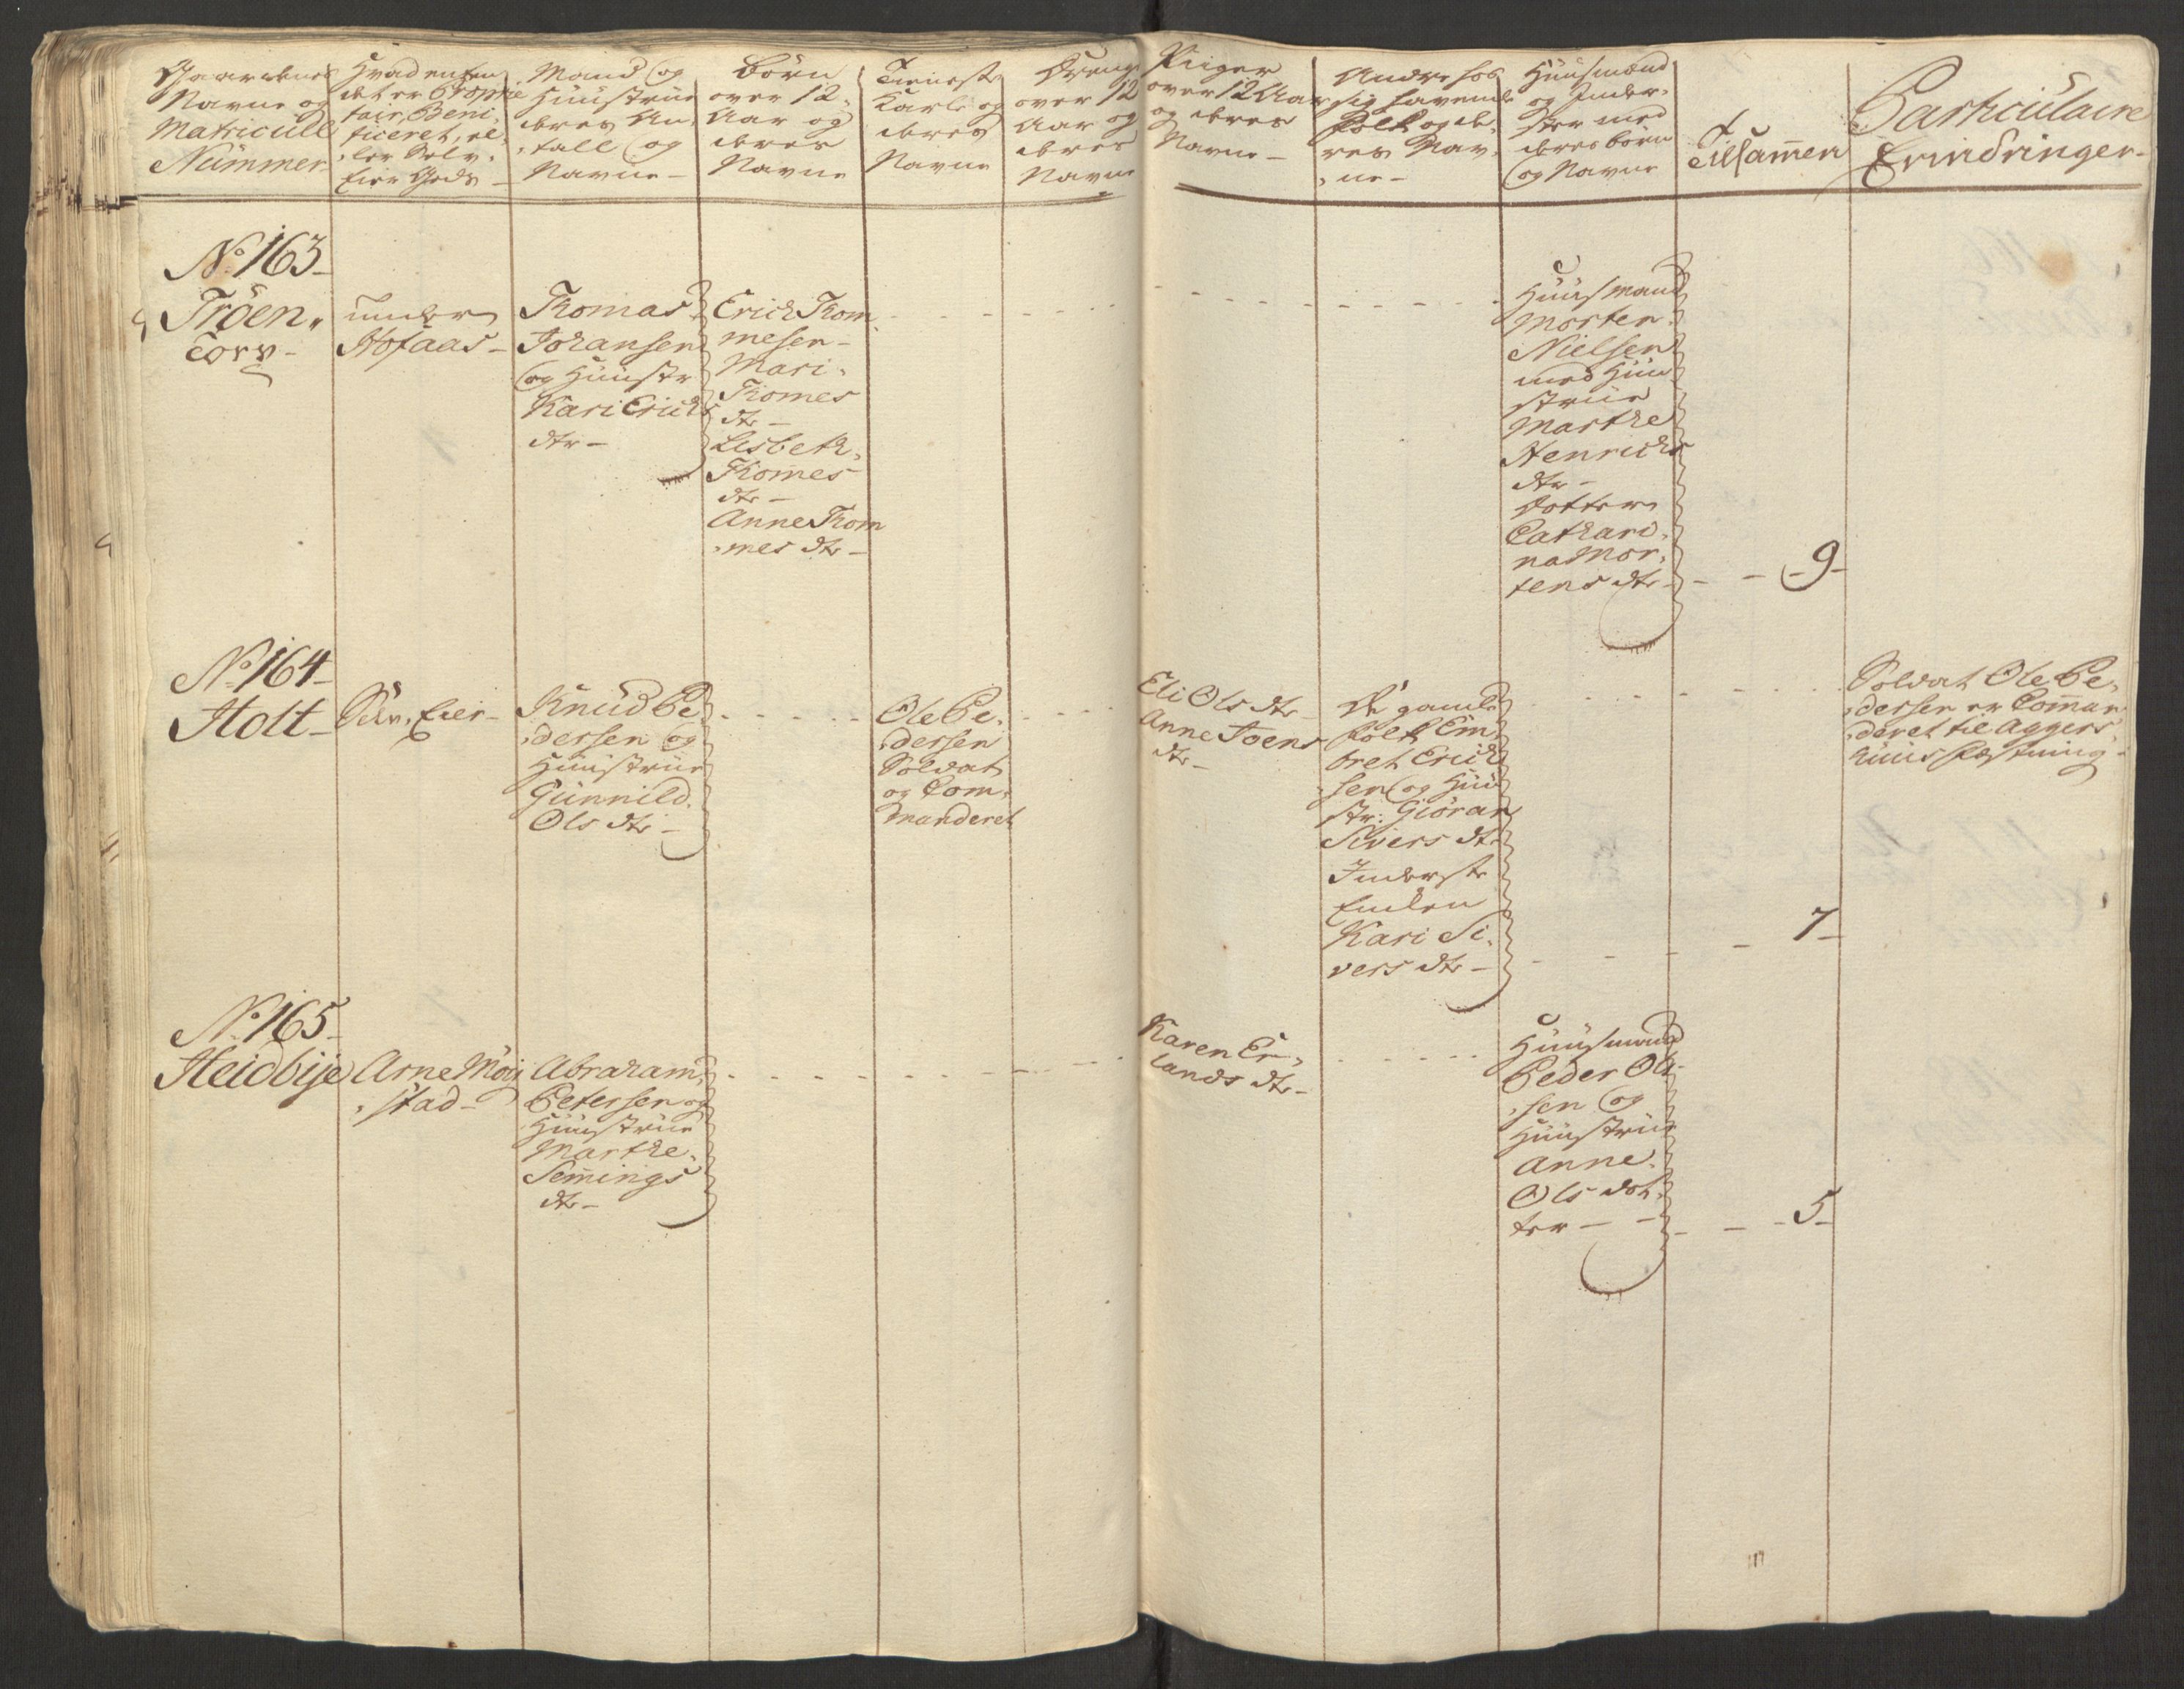 Gaardenes
Navne og
Matricull
Nummer
Hvad enten
det er Proprie
tair, Beni,
ficeret, el,
ler Selv,
Eier Gods
Mand og
Huustrue
deres An,
tall og
Navne
Börn
over 12
Aar og
deres
Navne
Tieneste
Karle og
deres
Navne
Drenge
over 12
Aar og
deres
Navne
Piiger
over 12 Aar
og deres
Navne
Andre hos
sig havende
Folk og de,
res Nav,
ne
Huusmænd
og Inder,
ster med
deres börn
og Navne
Tilsam̄en
Particulaire
Erindringer
No 163
Tröen,
Corv
under
Hofaas
Thomas
Johansen
og Huustr
Kari Erichs
dtr
Erich Thom
mesen
Mari
Thomes
dtr
Lisbeth
Thom̄es
dtr
Anne Thom
mes dtr
Huusmand
Morten
Nielsen
med Huu
strue
Marthe
Henrichs
dtr
Dotter
Cathari,
na Mor,
tens dtr
9
No 164
Holt
Selv, Eier
Knud Pe,
dersen og
Huustrue
Gunnild
Ols dtr
Ole Pe,
dersen
Soldat
og Com,
manderet
Eli Ols dtr
Anne Joens
dtr
De gamle
folk Em
bret Erich
sen og Huu
str: Giöran
Sivers dtr
Inderste
Enken
Kari Si,
vers dtr
7
Soldat Ole Pe,
dersen er Com̄an
deret til Aggers,
huus Fæstning
No 165
Heidbye
Arne Moi
stad
Abraham
Petersen og
Huustrue
Marthe
Sem̄ings
dtr
Karen Er,
lands dtr
Huusmand
Peder Ol
sen og
Huustrue
Anne
Ols dot,
ter
5